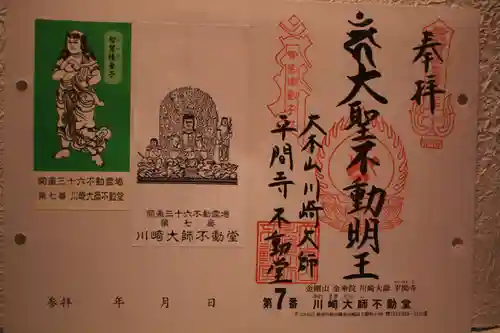 奉拝
大聖不動明王
大本山川崎大師
平間寺 不動堂
金剛山 金乗院 川崎大師 平間寺
第7番 川崎大師不動堂
関東三十六不動霊場
第七番 川崎大師不動堂
関東三十六不動霊場
第七番
川崎大師不動堂
参拝 年 月 日